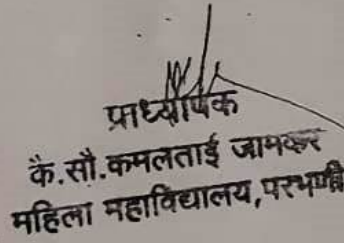 प्राध्यापक
कै.सौ.कमलताई जामकर
महिला महाविद्यालय,परभणी